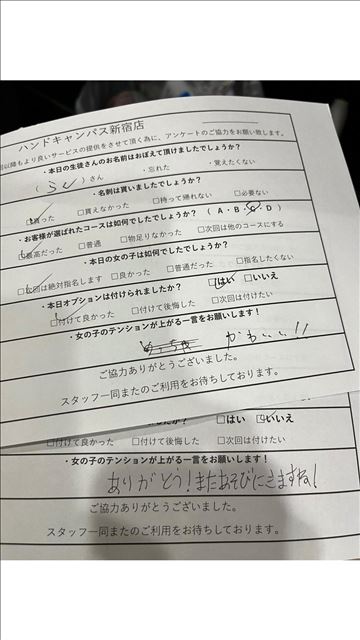 ハンドキャンパス新宿店
以降もより良いサービスの提供をさせて頂く為に、アンケートのご協力をお願い致します。
・本日の生徒さんのお名前はおぼえて頂けましたでしょうか?
( )さん ・忘れた ・覚えたくない
・名刺は貰いましたでしょうか?
☑貰った □貰えなかった □持って帰れない □必要ない
・お客様が選ばれたコースは如何でしたでしょうか? ( A・B・C・D )
☑最高だった □普通 □物足りなかった □次回は他のコースにする
・本日の女の子は如何でしたでしょうか?
☑次回は絶対指名します □良かった □普通だった □指名したくない
・本日オプションは付けられましたか? ☑はい □いいえ
☑付けて良かった □付けて後悔した □次回は付けたい
・女の子のテンションが上がる一言をお願いします!
かわいい!!
ご協力ありがとうございました。
スタッフ一同またのご利用をお待ちしております。
□はい ☑いいえ
□付けて良かった □付けて後悔した □次回は付けたい
・女の子のテンションが上がる一言をお願いします!
ありがとう!またあそびにきますね!
ご協力ありがとうございました。
スタッフ一同またのご利用をお待ちしております。